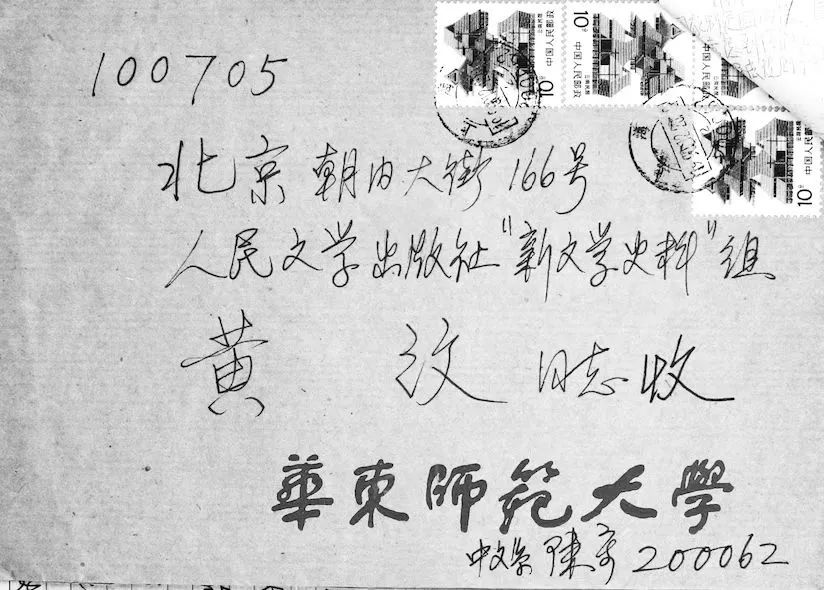 10分
云南民居
中国人民邮政
10分
云南民居
中国人民邮政
10分
云南民居
中国人民邮政
100705
北京 朝内大街166号
人民文学出版社“新文学史料”组
黄 汶 同志收
華東師範大學
中文系 陳 200062